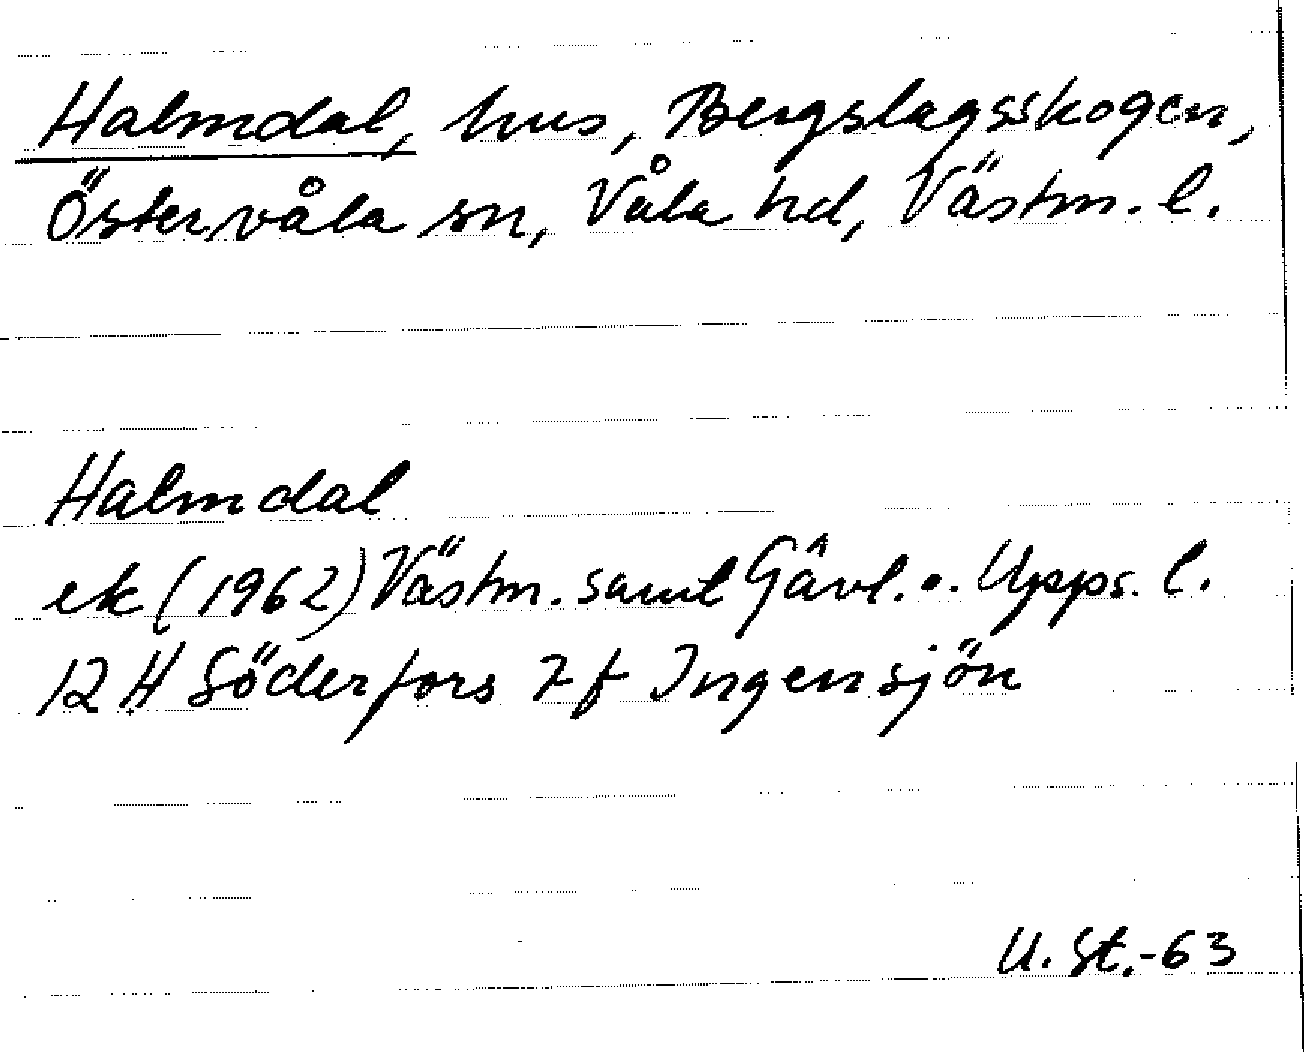 Halmdal, hus, Bergslagsskogen,
Östervåla sn, Våla hd, Västm. l.
Halmdal
ek (1962) Västm. samt Gävl. o. Upps. l.
12 H Söderfors 7 f Ingensjön
U. St.-63